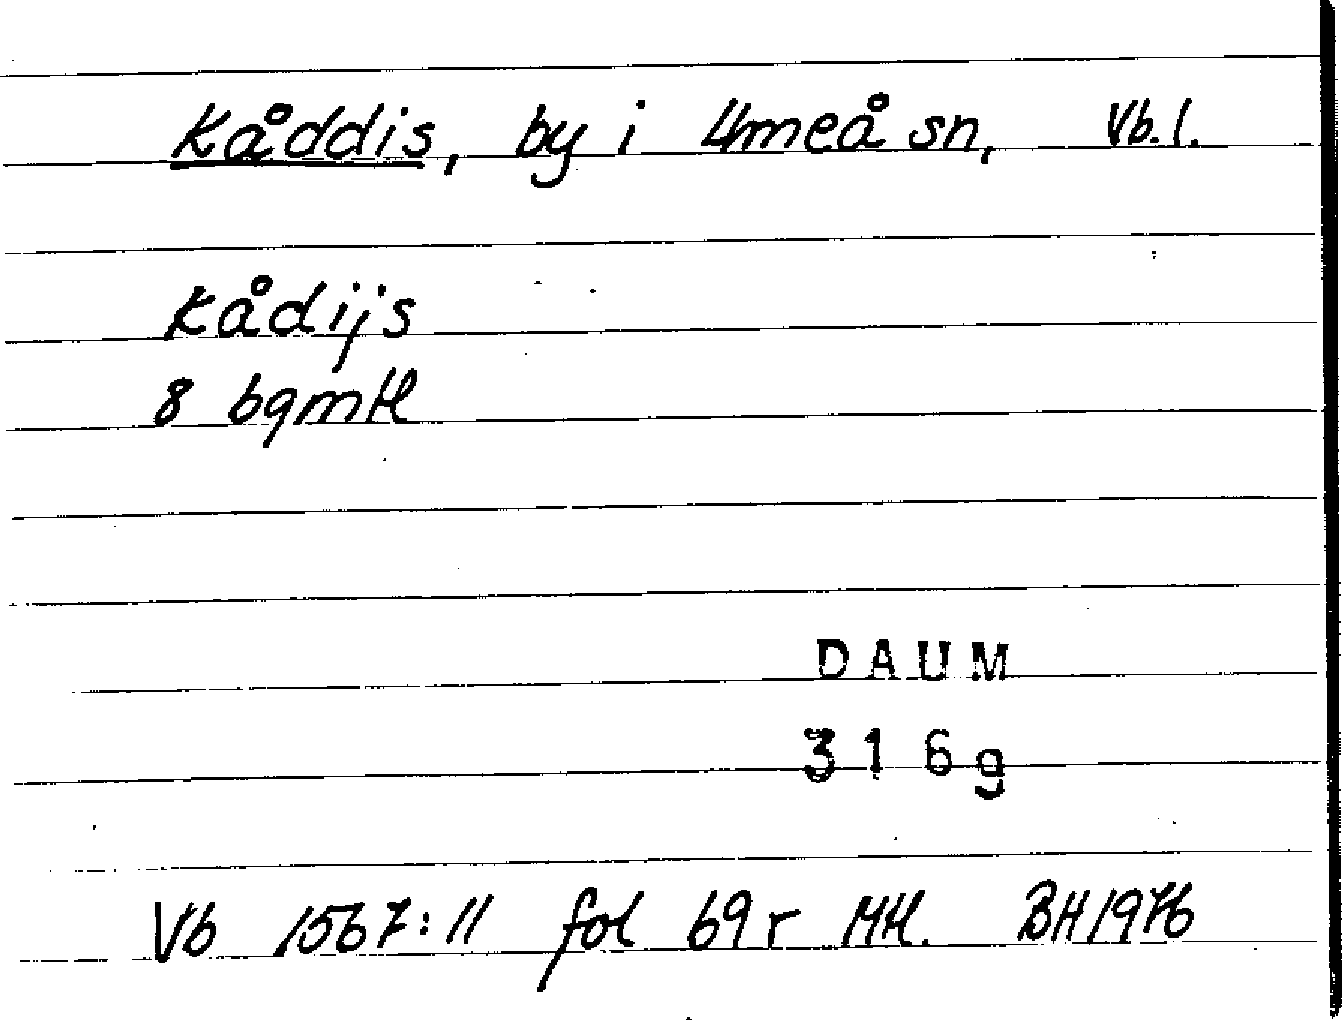 Kåddis, by i Umeå sn, Vb. l.
Kådijs
8 bgmtl
DAUM
316g
Vb 1567:11 fol 69r MtL. BH1976